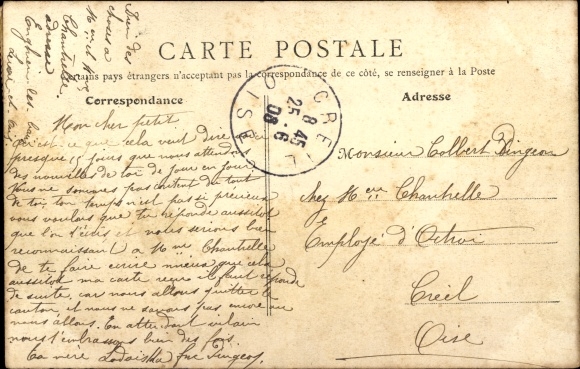 CARTE POSTALE
Certains pays étrangers n'acceptent pas la correspondance de ce côté, se renseigner à la Poste
Correspondance
Adresse
CREIL
8 45
25 - 6
08
OISE
Mon cher petit
Qu'est ce que cela veut dire
presque 15 jours que nous attendons
des nouvelles de toi de jour en jour
Nous ne sommes pas content du tout
de toi, ton temps n'est pas si précieux
nous voulons que tu réponde aussitôt
que l'on t'écris et nous serions bien
reconnaissant à Mme Chantrelle
de te faire écrire mieux que cela
aussitôt ma carte reçue il faut réponde
de suite, car nous allons quitter le
canton, et nous ne savons pas encore où
nous allons. En attendant
nous t'embrassons bien des fois
Ta mère
Bien des
choses a
Mr et Mme
Chantrelle
adresse
Enghien les bains
Monsieur Colbert Pingeon
chez Mme Chantrelle
Employé d'Octroi
Creil
Oise